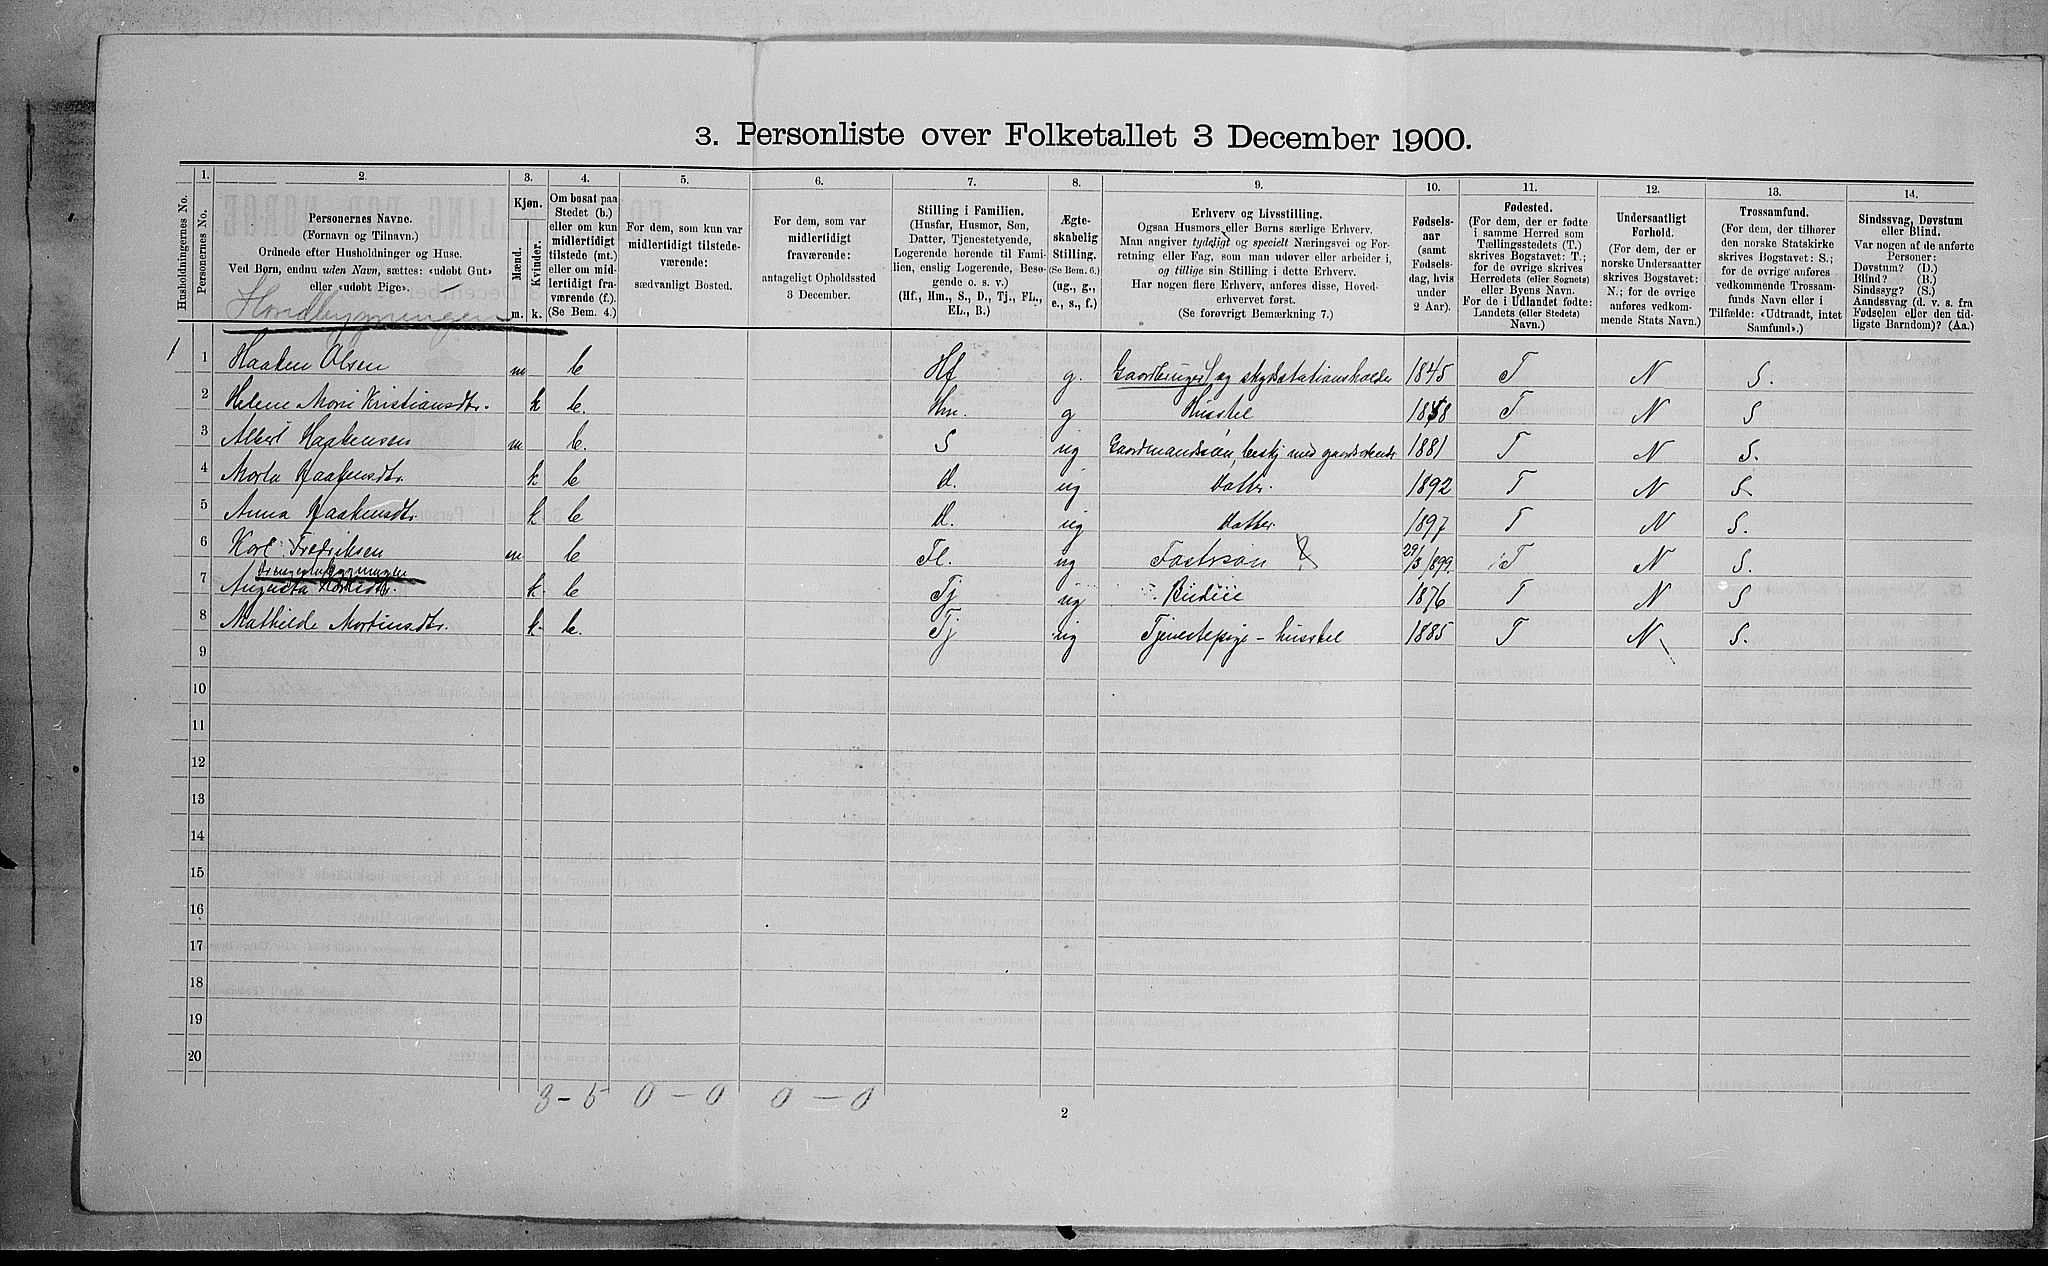 3. Personliste over Folketallet 3 December 1900.
1. 2. 3. 4. 5. 6. 7. 8. 9. 10. 11. 12. 13. 14.
Husholdningernes No.
Personernes No.
Personernes Navne.
(Fornavn og Tilnavn.)
Ordnede efter Husholdninger og Huse.
Ved Børn, endnu uden Navn, sættes: «udøbt Gut»
eller «udøbt Pige».
Kjøn.
Mænd.
Kvinder.
m. k.
Om bosat paa
Stedet (b.)
eller om kun
midlertidigt
tilstede (mt.)
eller om mid-
lertidigt fra-
værende (f.).
(Se Bem. 4.)
For dem, som kun var
midlertidigt tilstede-
værende:
sædvanligt Bosted.
For dem, som var
midlertidigt
fraværende:
antageligt Opholdssted
3 December.
Stilling i Familien.
(Husfar, Husmor, Søn,
Datter, Tjenestetyende,
Logerende hørende til Fami-
lien, enslig Logerende, Besø-
gende o. s. v.)
(Hf., Hm., S., D., Tj., FL.,
EL., B.)
Ægte-
skabelig
Stilling.
(Se Bem. 6.)
(ug., g.,
e., s., f.)
Erhverv og Livsstilling.
Ogsaa Husmors eller Børns særlige Erhverv.
Man angiver tydeligt og specielt Næringsvei og For-
retning eller Fag, som man udøver eller arbeider i,
og tillige sin Stilling i dette Erhverv.
Har nogen flere Erhverv, anføres disse, Hoved-
erhvervet først.
(Se forøvrigt Bemærkning 7.)
Fødsels-
aar
(samt
Fødsels-
dag, hvis
under
2 Aar).
Fødested.
(For dem, der er fødte
i samme Herred som
Tællingsstedets (T.)
skrives Bogstavet: T.;
for de øvrige skrives
Herredets (eller Sognets)
eller Byens Navn.
For de i Udlandet fødte:
Landets (eller Stedets)
Navn.)
Undersaatligt
Forhold.
(For dem, der er
norske Undersaatter
skrives Bogstavet:
N.; for de øvrige
anføres vedkom-
mende Stats Navn.)
Trossamfund.
(For dem, der tilhører
den norske Statskirke
skrives Bogstavet: S.;
for de øvrige anføres
vedkommende Trossam-
funds Navn eller i
Tilfælde: «Udtraadt, intet
Samfund».)
Sindssvag, Døvstum
eller Blind.
Var nogen af de anførte
Personer:
Døvstum? (D.)
Blind? (B.)
Sindssyg? (S.)
Aandssvag (d. v. s. fra
Fødselen eller den tid-
ligste Barndom)? (Aa.)
Hovedbygningen
1 1 Haaken Olsen m b Hf g. Gaardbruger og skydsstationsholder 1845 T N S.
2 Helene Marie Kristiansdtr. k b. Hm. g Husstel 1848 T N S
3 Albert Haakensen m b. S ug Gaardmandssøn, beskj med gaardsarbeide 1881 T N S.
4 Marta Haakensdtr. k b d. ug Datter. 1892 T N S
5 Anna Haakensdtr. k b d. ug Datter. 1897 T N S.
6 Karl Fredriksen m b Fl. ug Fostersøn ? 29/3 1899. T N S.
7 Augusta k b Tj ug Budeie 1876 T N S
8 Mathilde Martinsdtr. k b. Tj ug Tjenestepige - husstel 1885 T N S.
9
10
11
12
13
14
15
16
17
18
19
20
3-5 0-0 0-0
2